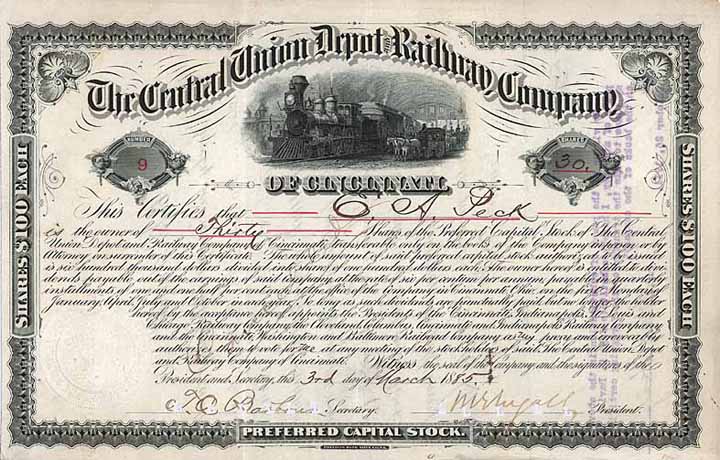 The Central Union Depot and Railway Company
OF CINCINNATI.
NUMBER
9
SHARES
30.
SHARES $100 EACH
SHARES $100 EACH
This Certifies that E. A. Peck
is the owner of Thirty Shares of the Preferred Capital Stock of The Central
Union Depot and Railway Company of Cincinnati, transferable only on the books of the Company in person or by
Attorney on surrender of this Certificate. The whole amount of said preferred capital stock authorized to be issued
is six hundred thousand dollars divided into shares of one hundred dollars each. The owner hereof is entitled to divi-
dends payable out of the earnings of said company at the rate of six per centum per annum, payable in quarterly
instalments of one and one half per cent at the office of the Company in Cincinnati, Ohio, on the first days of
January, April, July and October in each year. So long as such dividends are punctually paid, but no longer, the holder
hereof by the acceptance hereof appoints the Presidents of the Cincinnati, Indianapolis, St. Louis and
Chicago Railway Company, the Cleveland, Columbus, Cincinnati and Indianapolis Railway Company
and the Cincinnati, Washington and Baltimore Railroad Company as my proxy and irrevocably
authorizes them to vote for me at any meeting of the stockholders of said, The Central Union Depot
and Railway Company of Cincinnati. Witness the seal of the company and the signatures of the
President and Secretary, this 3rd day of March 1885.
Secretary. President.
PREFERRED CAPITAL STOCK.